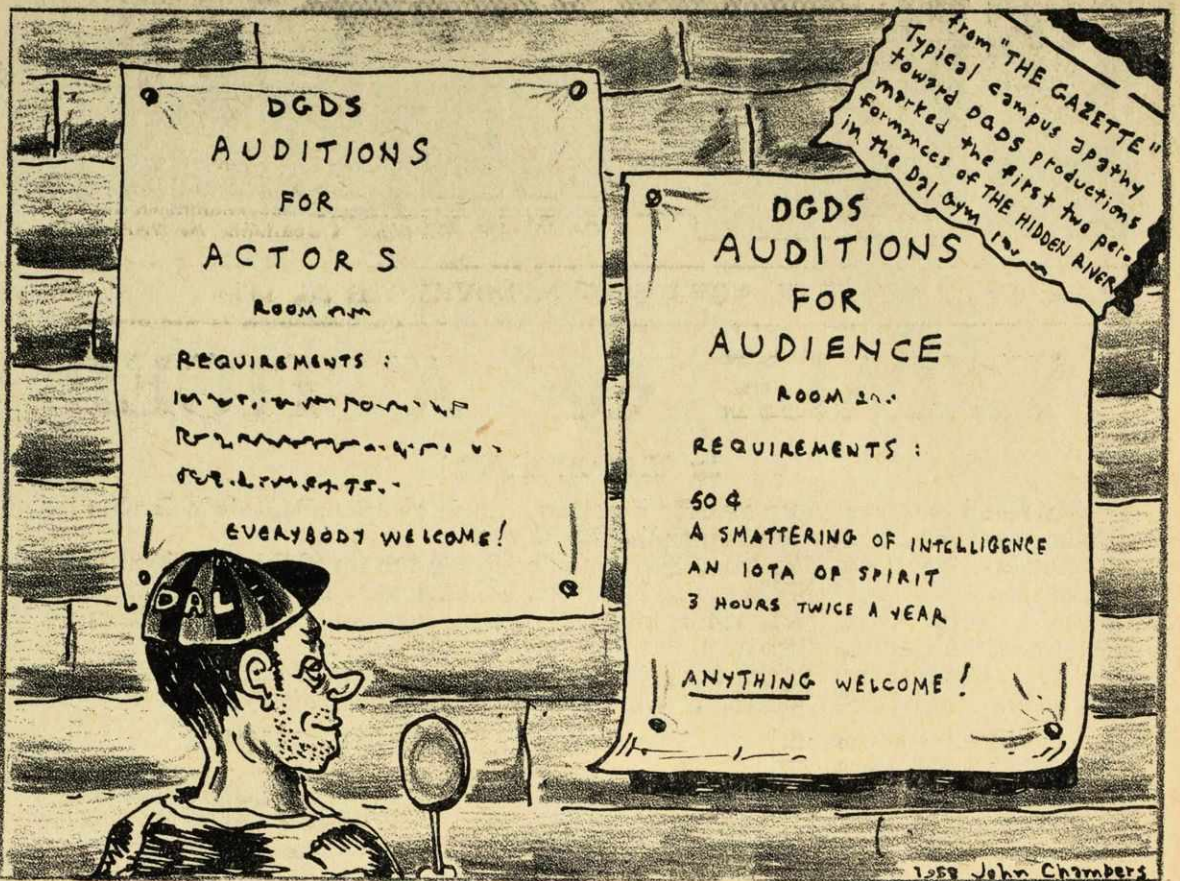 DGDS
AUDITIONS
FOR
ACTORS
ROOM
REQUIREMENTS :
EVERYBODY WELCOME!
DAL
from "THE GAZETTE"
Typical campus apathy
toward DGDS productions
marked the first two per-
formances of THE HIDDEN RIVER
in the Dal Gym
DGDS
AUDITIONS
FOR
AUDIENCE
ROOM
REQUIREMENTS :
50 ¢
A SMATTERING OF INTELLIGENCE
AN IOTA OF SPIRIT
3 HOURS TWICE A YEAR
ANYTHING WELCOME!
1958 John Chambers